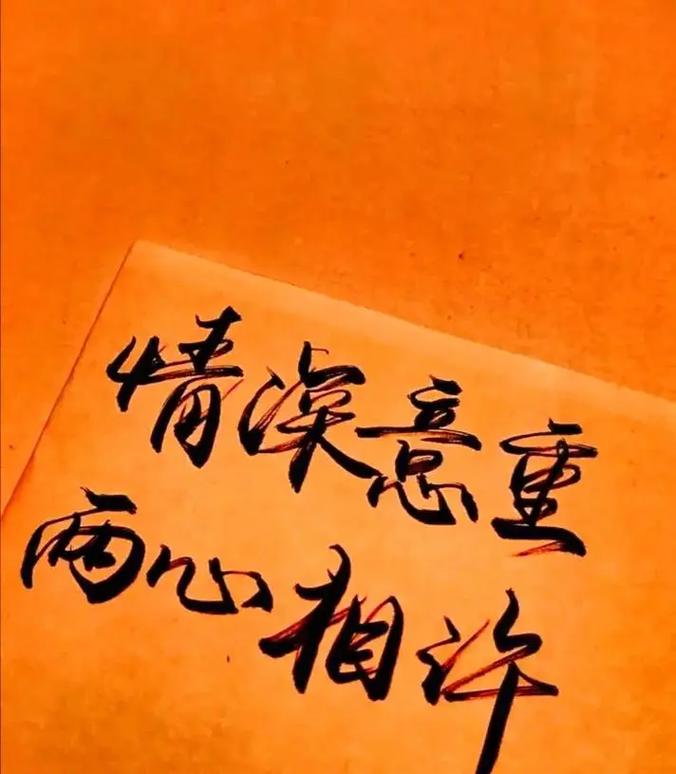 情深意重
两心相许